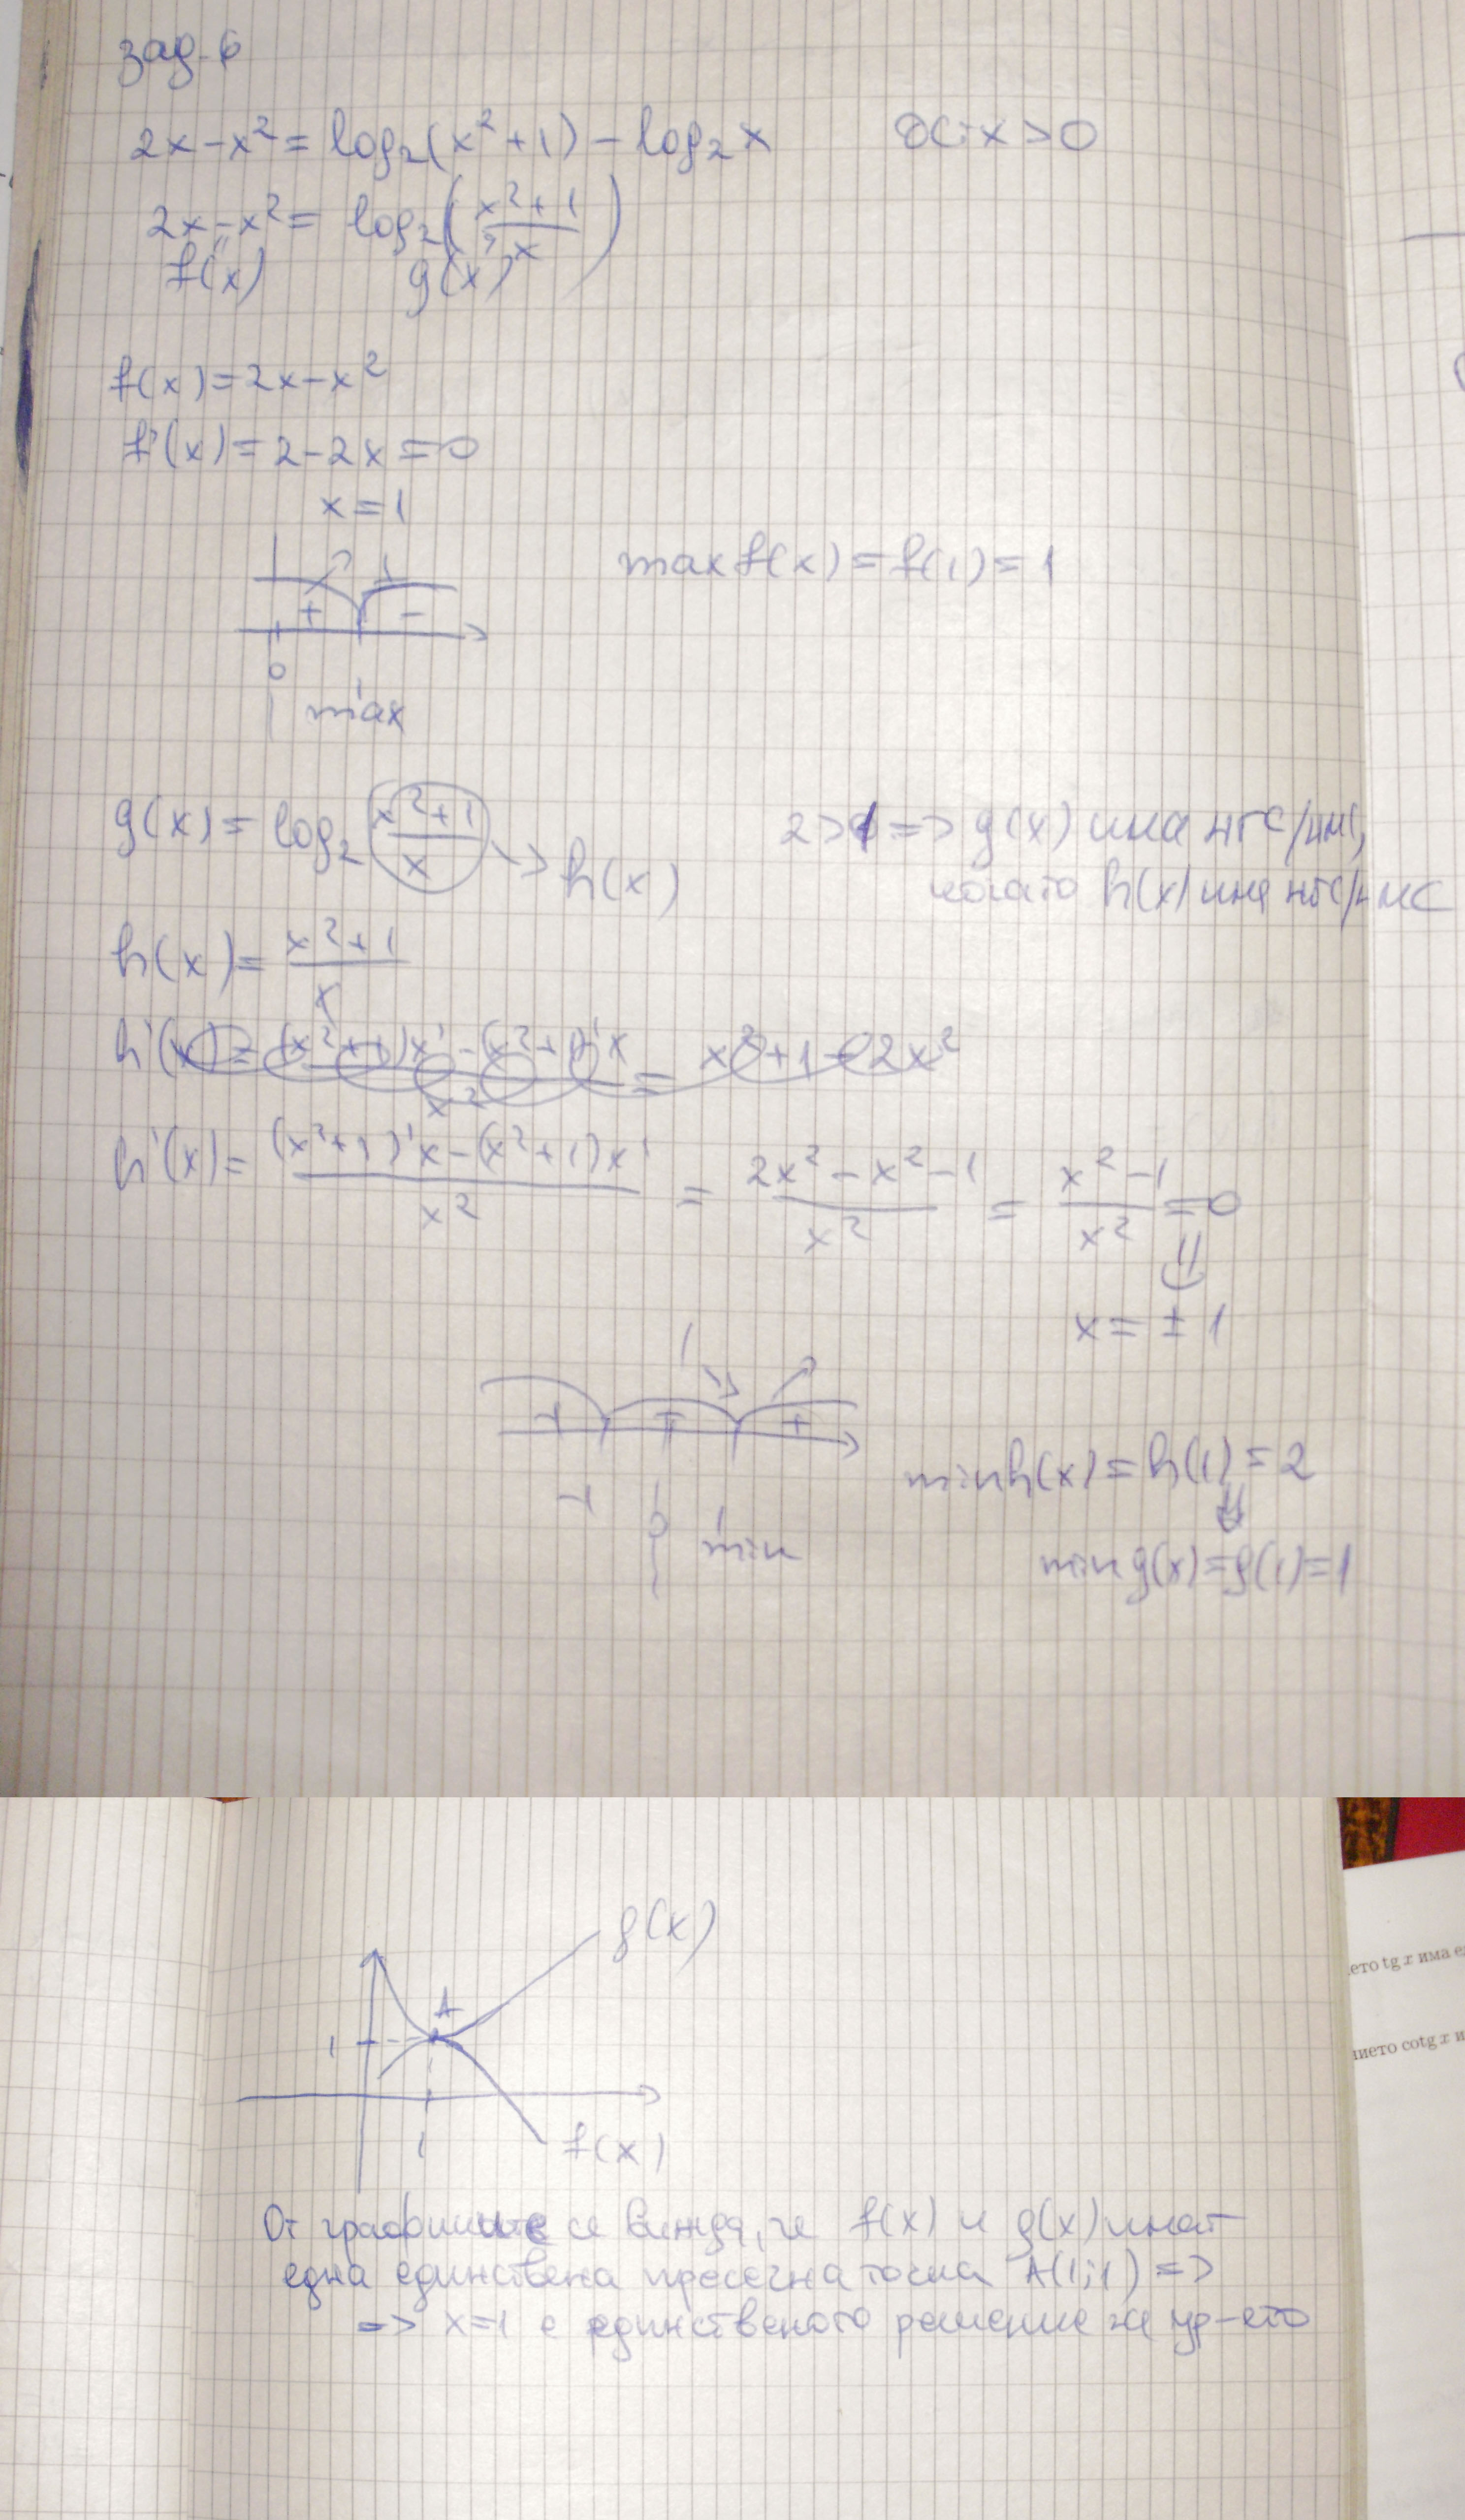 зад. 6
2x-x² = log₂(x²+1) - log₂x ДС: x>0
2x-x² = log₂((x²+1)/x)
f(x) g(x)
f(x)=2x-x²
f'(x)=2-2x=0
x=1
max f(x)=f(1)=1
+ -
0 1
max
g(x)=log₂ (x²+1)/x → h(x) 2>1 => g(x) има НГС/НМС,
когато h(x) има НГС/НМС
h(x)= (x²+1)/x
h'(x) = ((x²+1)x' - (x²+1)'x)/x² = x²+1-2x²
h'(x)= ((x²+1)'x-(x²+1)x')/x² = (2x²-x²-1)/x² = (x²-1)/x² =0
⇓
x=±1
+ - +
-1 0 1
min
min h(x)=h(1)=2
⇓
min g(x)=g(1)=1
g(x)
A
1
1
f(x)
От графиките се вижда, че f(x) и g(x) имат
една единствена пресечна точка A(1;1) =>
=> x=1 е единственото решение на ур-ето
ето tg x има
нието cotg x и